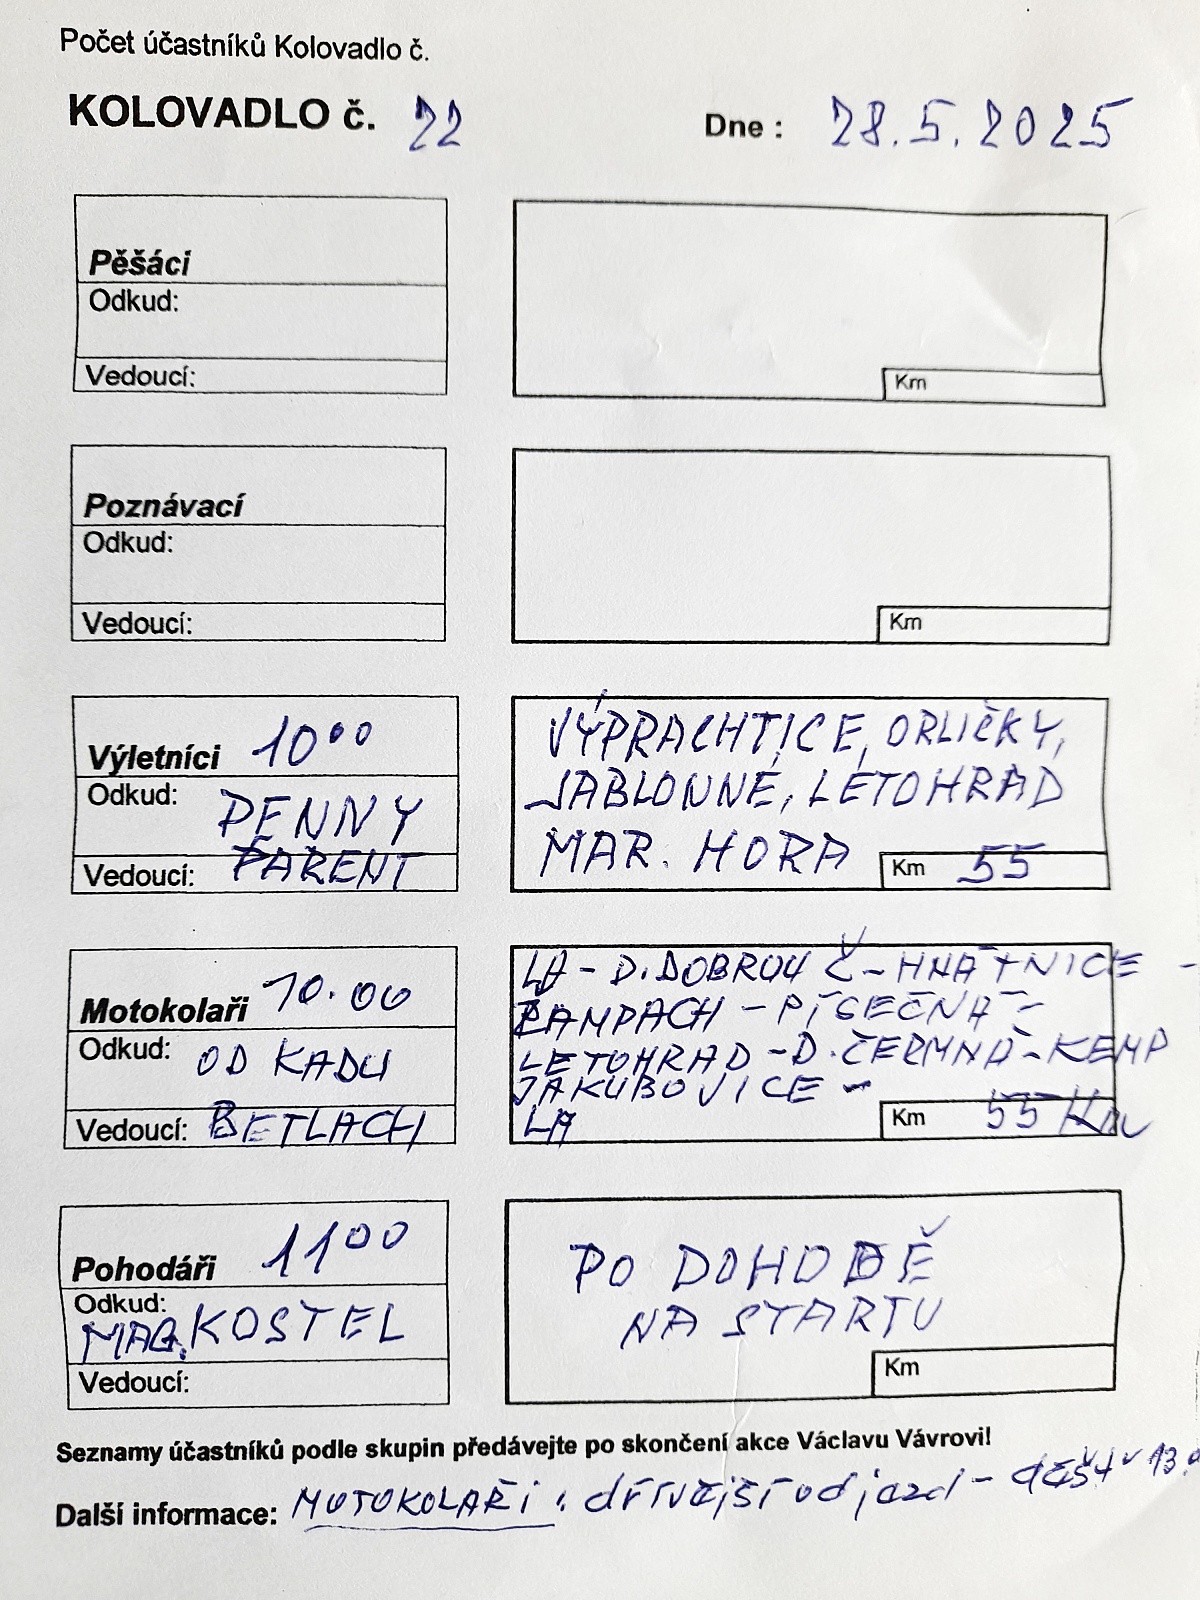 Počet účastníků Kolovadlo č.
KOLOVADLO č. 22 Dne : 28.5.2025
Pěšáci
Odkud:
Vedoucí:
Km
Poznávací
Odkud:
Vedoucí:
Km
Výletníci 10⁰⁰
Odkud: PENNY
Vedoucí: PAŘENT
VÝPRACHTICE, ORLIČKY,
JABLONNÉ, LETOHRAD
MAR. HORA
Km 55
Motokolaři 10.00
Odkud: OD KADU
Vedoucí: BETLACH
LA - D. DOBROUČ - HNÁTNICE -
ŽAMPACH - PÍSEČNÁ -
LETOHRAD - D. ČERMNÁ - KEMP
JAKUBOVICE -
LA
Km 55 Km
Pohodáři 11⁰⁰
Odkud:
MAG. KOSTEL
Vedoucí:
PO DOHODĚ
NA STARTU
Km
Seznamy účastníků podle skupin předávejte po skončení akce Václavu Vávrovi!
Další informace: MOTOKOLAŘI : dřívější odjezd - déšť v 13.